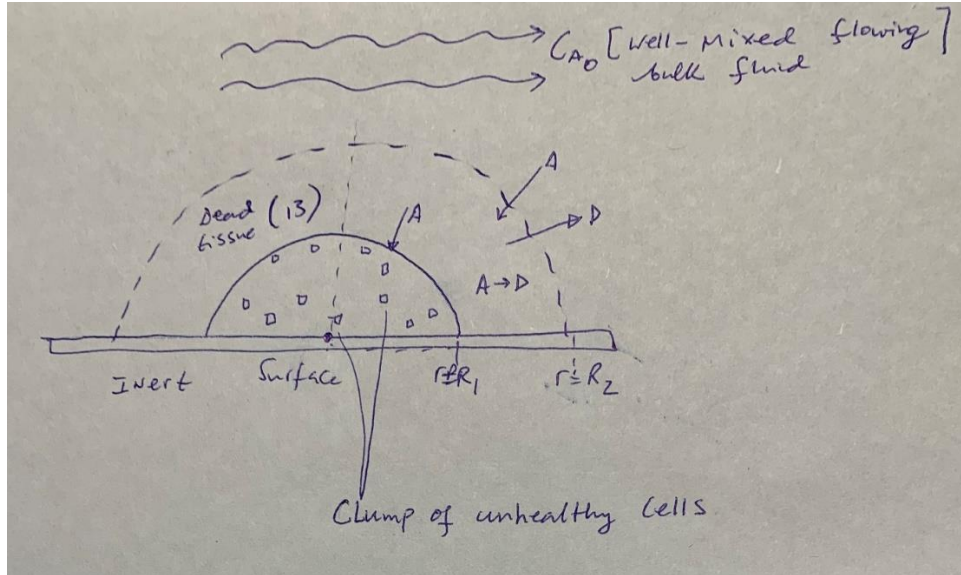 CAo [Well-Mixed flowing]
bulk fluid
A
Dead (13)
tissue
A
D
A→D
Inert Surface r=R1 r=R2
Clump of unhealthy Cells